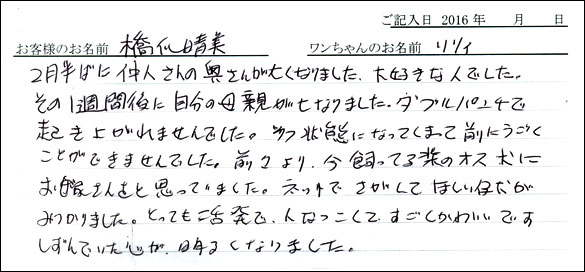 ご記入日 2016年 月 日
お客様のお名前 橋爪晴美 ワンちゃんのお名前 リリィ
2月半ばに仲人さんの奥さんが亡くなりました。大好きな人でした。
その1週間後に自分の母親が亡なりました。ダブルパンチで
起き上がれませんでした。うつ状態になってしまって前にうごく
ことができませんでした。前々より、今飼ってる茶のオス犬に
お嫁さんをと思っていました。ネットで さがして ほしい
みつかりました。とっても活発で、人なつっこくて すごくかわいいです
しずんでいた心が、明るくなりました。